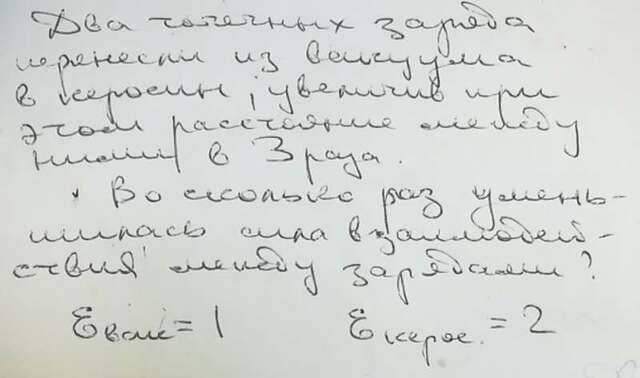 Два точечных заряда
перенесли из вакуума
в керосин, увеличив при
этом расстояние между
ними в 3 раза.
Во сколько раз умень-
шилась сила взаимодей-
ствия между зарядами?
Eвак = 1 Eкерос. = 2